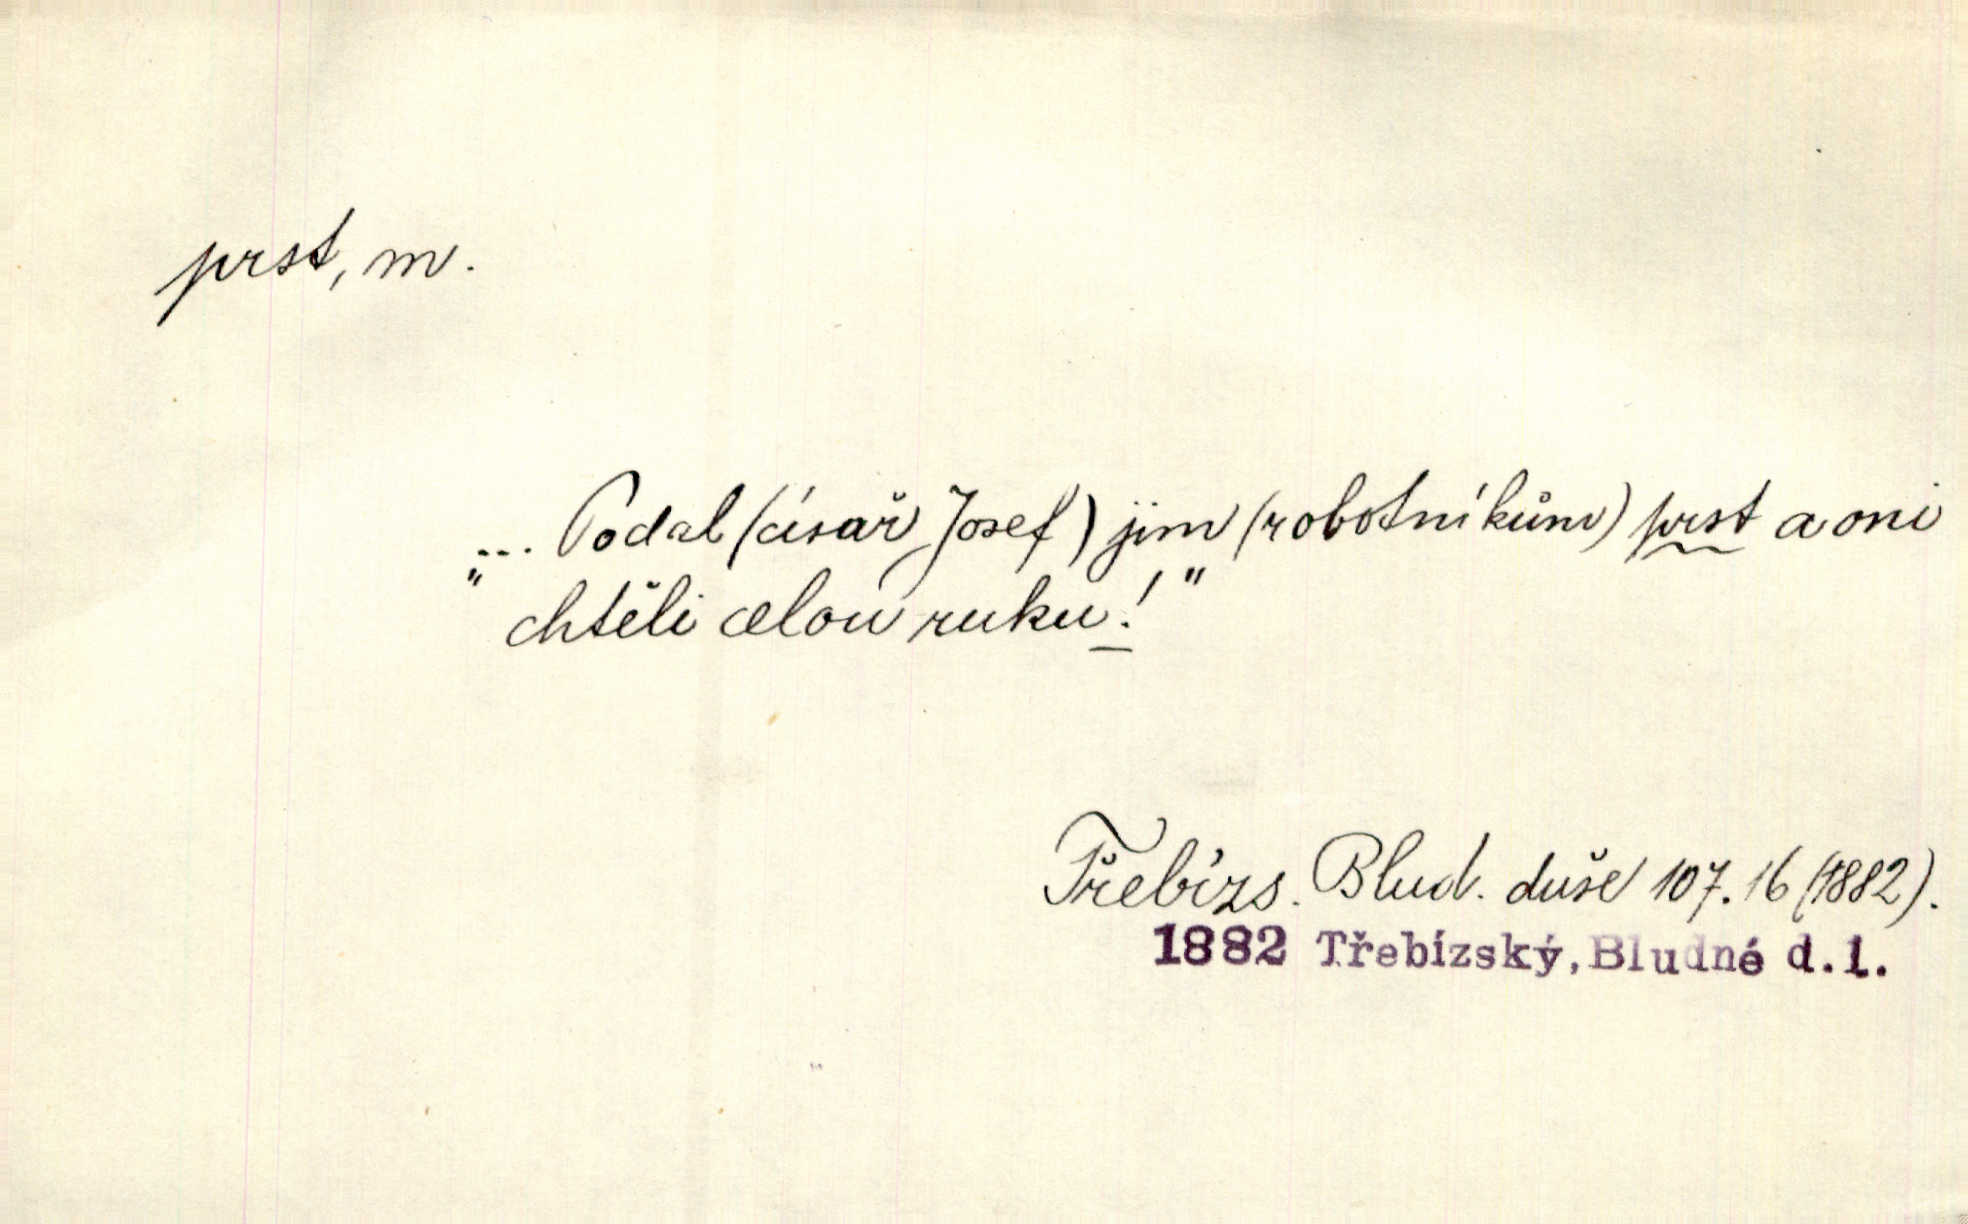 prst, m.
„... Podal (císař Josef) jim (robotníkům) prst a oni
chtěli celou ruku!"
Třebízs. Blud. duše 107.16 (1882).
1882 Třebízský, Bludné d.1.